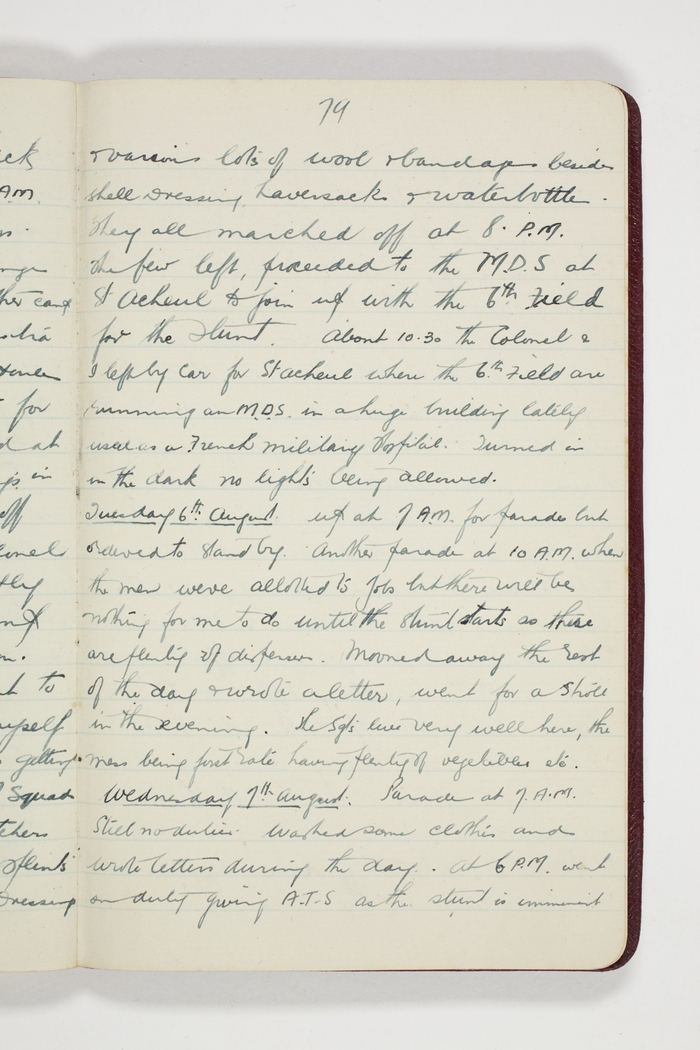 74
& various lots of wool & bandages besides
shell dressing, haversacks & waterbottles.
They all marched off at 8. P.M.
The few left, proceeded to the M.D.S at
St Acheul to join up with the 6th Field
for the Stunt. About 10.30 the Colonel &
I left by car for St Acheul where the 6th Field are
running an M.D.S. in a huge building lately
used as a French military Hospital. Turned in
in the dark no lights being allowed.
Tuesday 6th August. up at 7 A.M. for parade but
ordered to stand by. Another parade at 10 A.M. when
the men were allotted to jobs but there will be
nothing for me to do until the stunt starts so there
are plenty of dispensers. Mooned away the rest
of the day & wrote a letter, went for a stroll
in the evening. The Sgts live very well here, the
mess being first rate having plenty of vegetables etc.
Wednesday 7th August. Parade at 7. A.M.
Still no duties. Washed some clothes and
wrote letters during the day. At 6 P.M. went
on duty giving A.T.S as the stunt is imminent
ck
A.M.
for
d at
in
off
to
myself
getting
Squad
Dressing